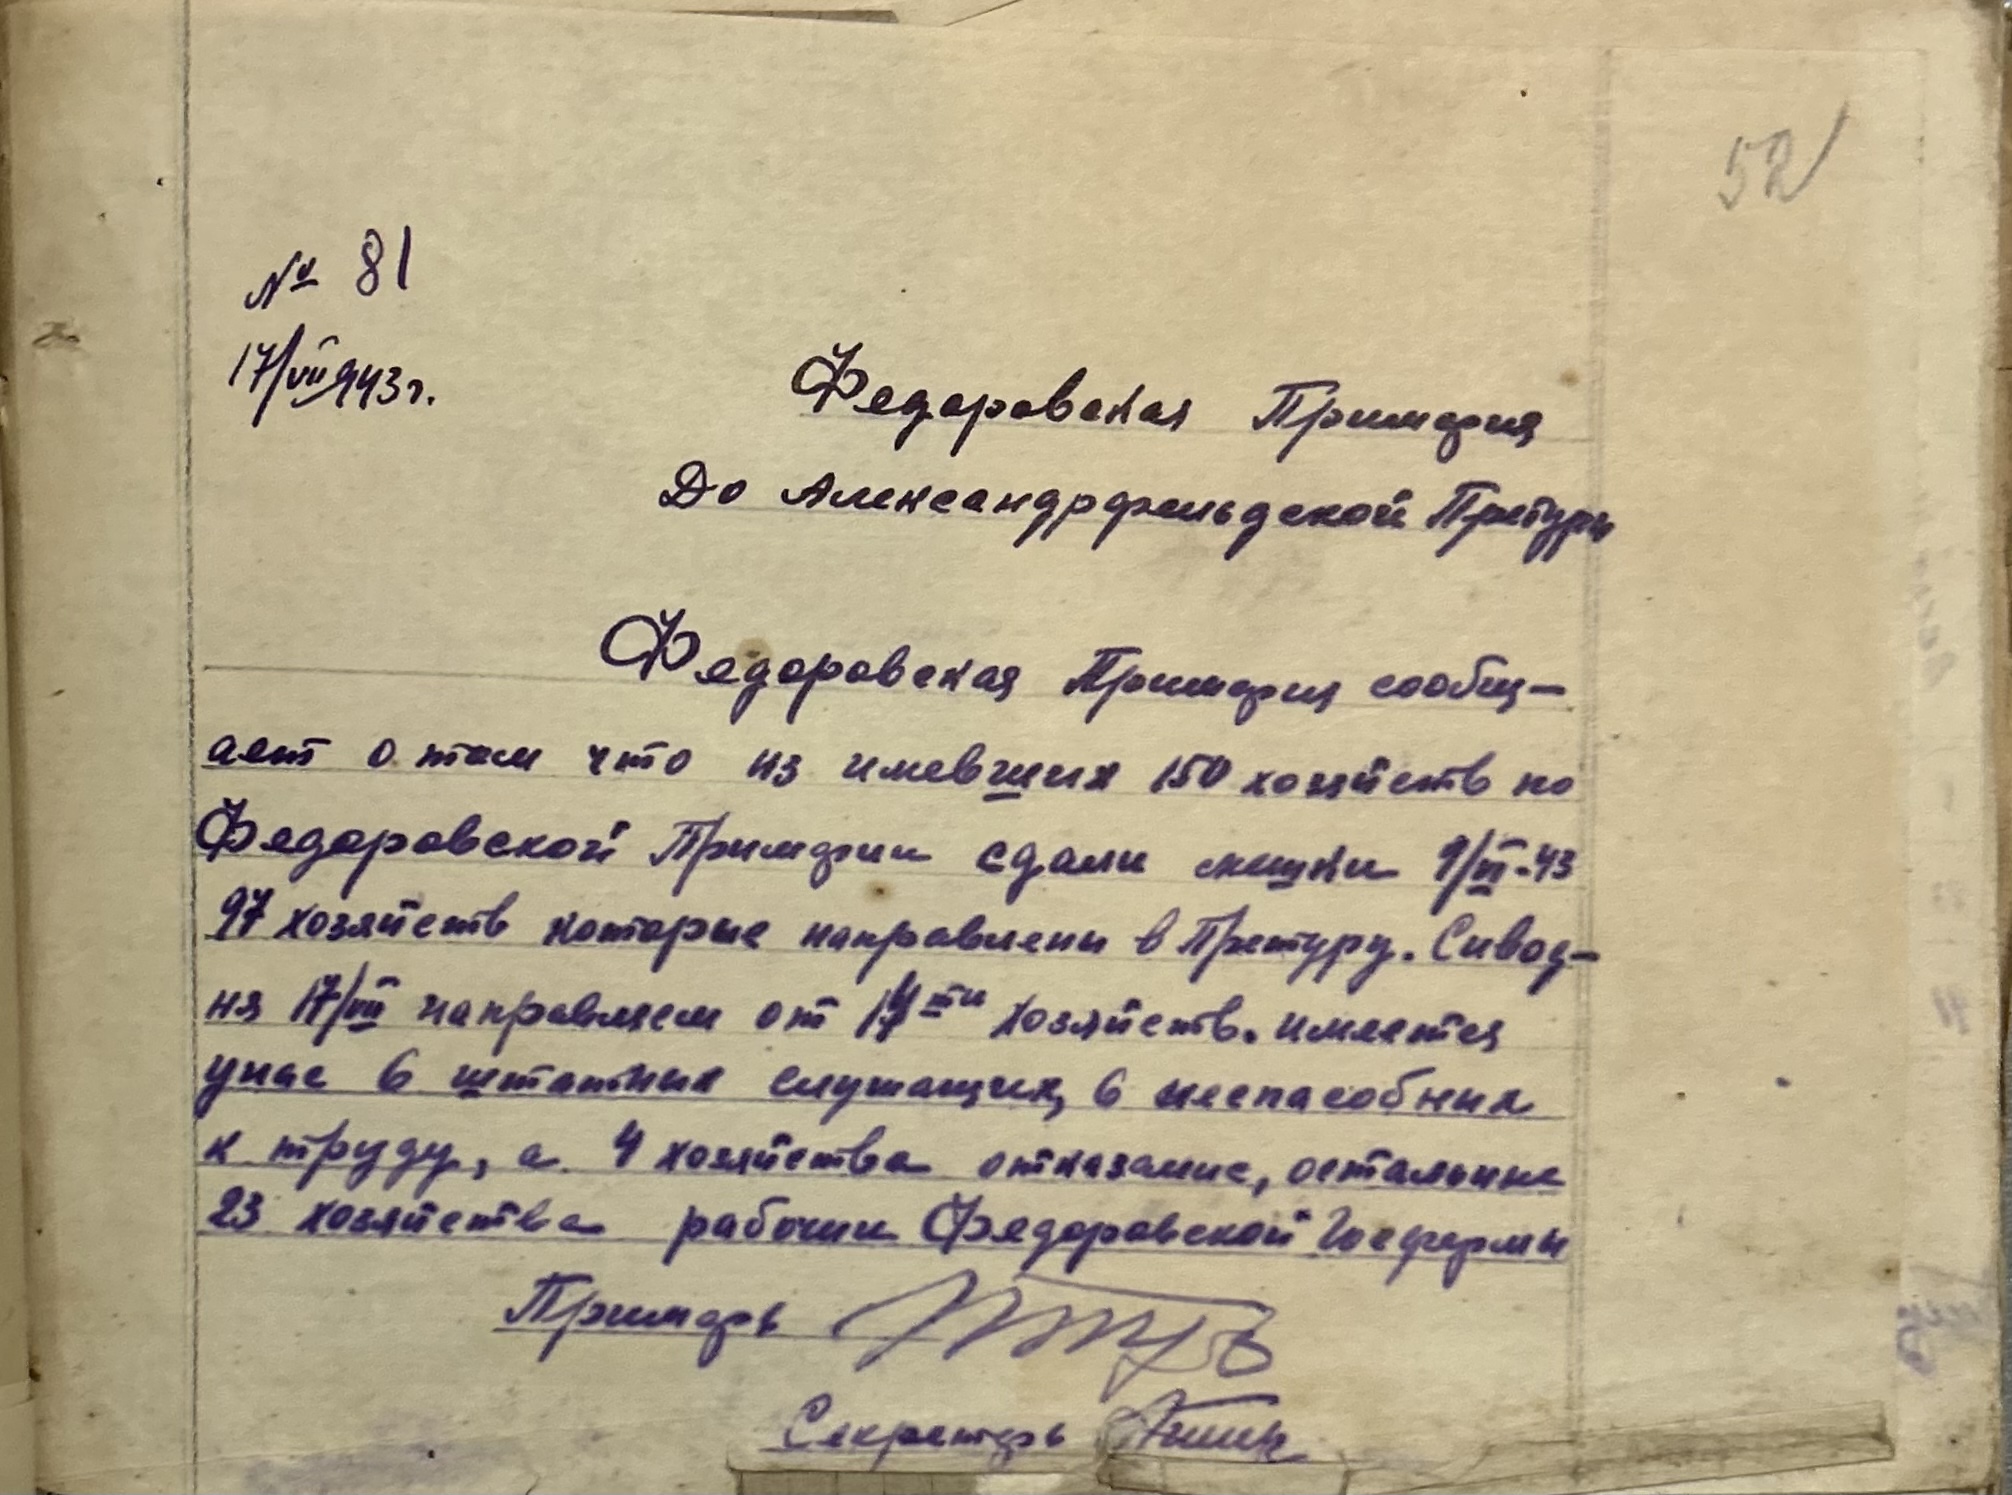 52
№ 81
17/VII 943 г.
Федоровская Примэрия
До Александрфельдской Претуры
Федоровская Примэрия сообщ-
ает о том что из имевших 150 хозяйств по
Федоровской Примэрии сдали мешки 9/VII-43
97 хозяйств которые направлены в Претуру. Сивод-
ня 17/VII направляем от 14ти хозяйств. имеется
унас 6 штатных служащих, 6 неспасобных
к труду, а 4 хозяйства отказание, остальные
23 хозяйства рабочии Федоровской Госфермы
Примэрь
Секретэрь